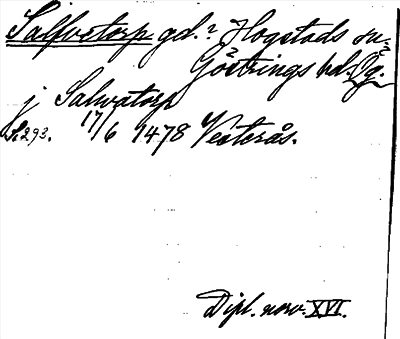 Salfvetorp gd.² Hogstads sn²
Göstrings hd. Ög.
j Salvatorp
17/6 1478 Vesterås.
S. 293.
Dipl. norv. XVI.